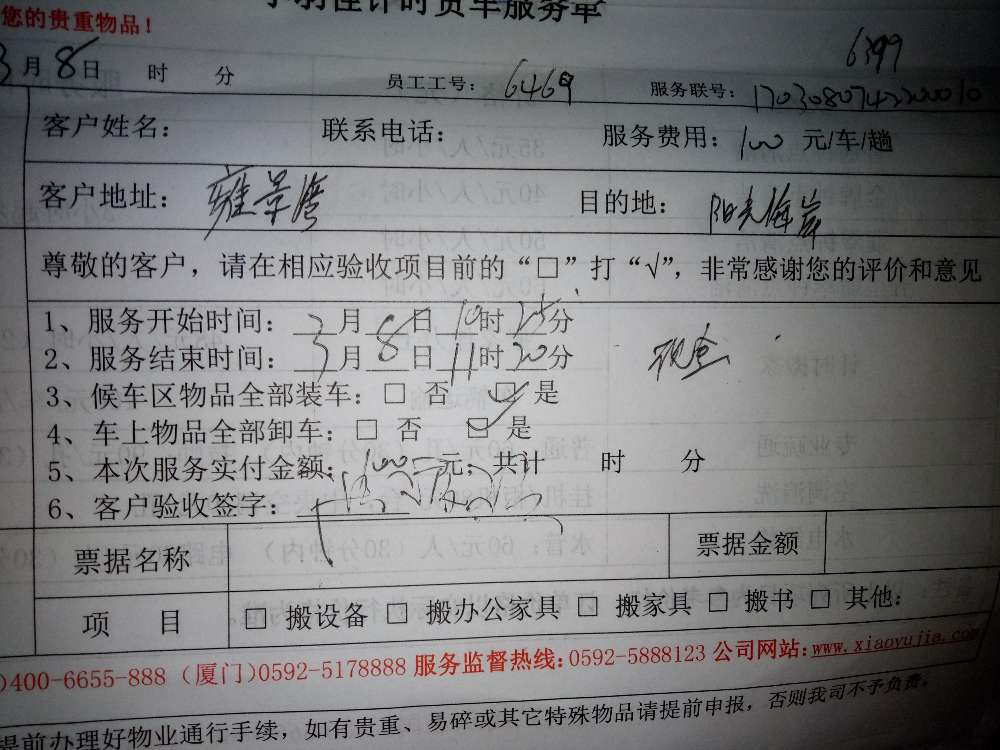 您的贵重物品！
计时货车服务单
6399
3月8日 时 分 员工工号：6469 服务联号：
客户姓名： 联系电话： 服务费用：100 元/车/趟
客户地址：雍景湾 目的地：阳光海岸
尊敬的客户，请在相应验收项目前的“□”打“√”，非常感谢您的评价和意见
1、服务开始时间：3月8日10时25分
2、服务结束时间：3月8日11时20分 现金
3、候车区物品全部装车：□ 否 ☑ 是
4、车上物品全部卸车：□ 否 ☑ 是
5、本次服务实付金额：100元；共计 时 分
6、客户验收签字：
票据名称 票据金额
项 目 □ 搬设备 □ 搬办公家具 □ 搬家具 □ 搬书 □ 其他：
)400-6655-888（厦门)0592-5178888 服务监督热线：0592-5888123 公司网站：www.xiaoyujia.com
提前办理好物业通行手续，如有贵重、易碎或其它特殊物品请提前申报，否则我司不予负责。